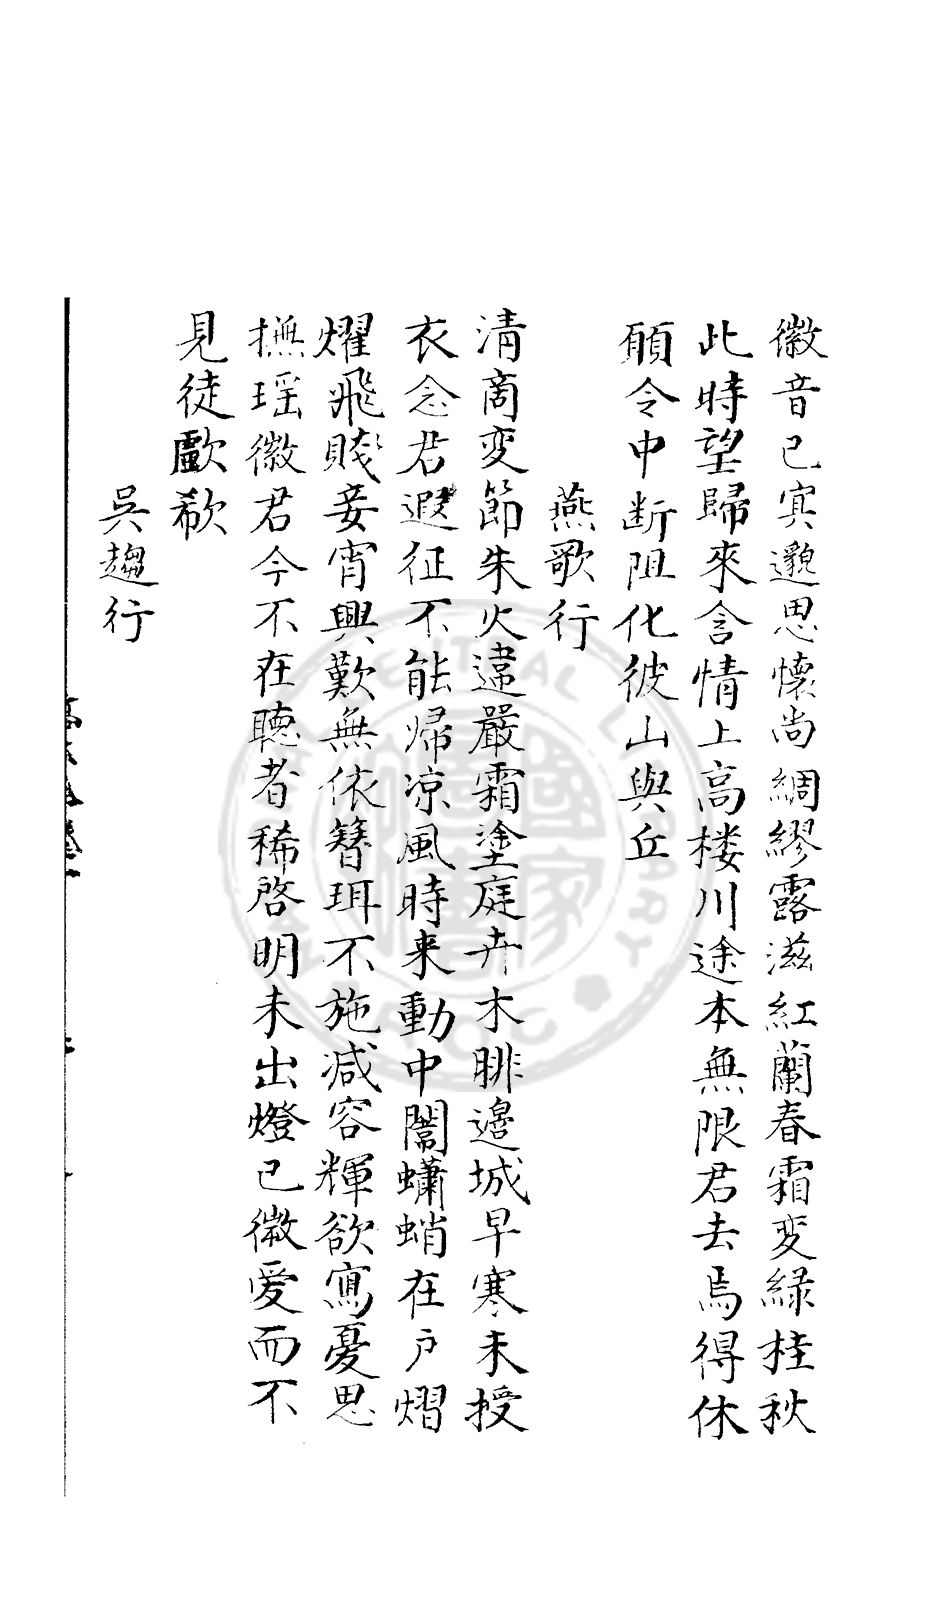 徽音已寅邈思懷尚綢繆露滋紅蘭春霜変緑桂秋
此時望歸來含情上高楼川途本無限君去焉得休
願令中断阻化彼山與丘
燕歌行
清商変節朱火違嚴霜塗庭卉木腓邊城早寒未授
衣念君遐征不能帰凉風時来動中閨蠨蛸在户熠
燿飛賤妾宵興歎無依簪珥不施减容輝欲寫憂思
撫瑶徽君今不在聴者稀啓明未出燈已微爱而不
見徒歔欷
吳趨行